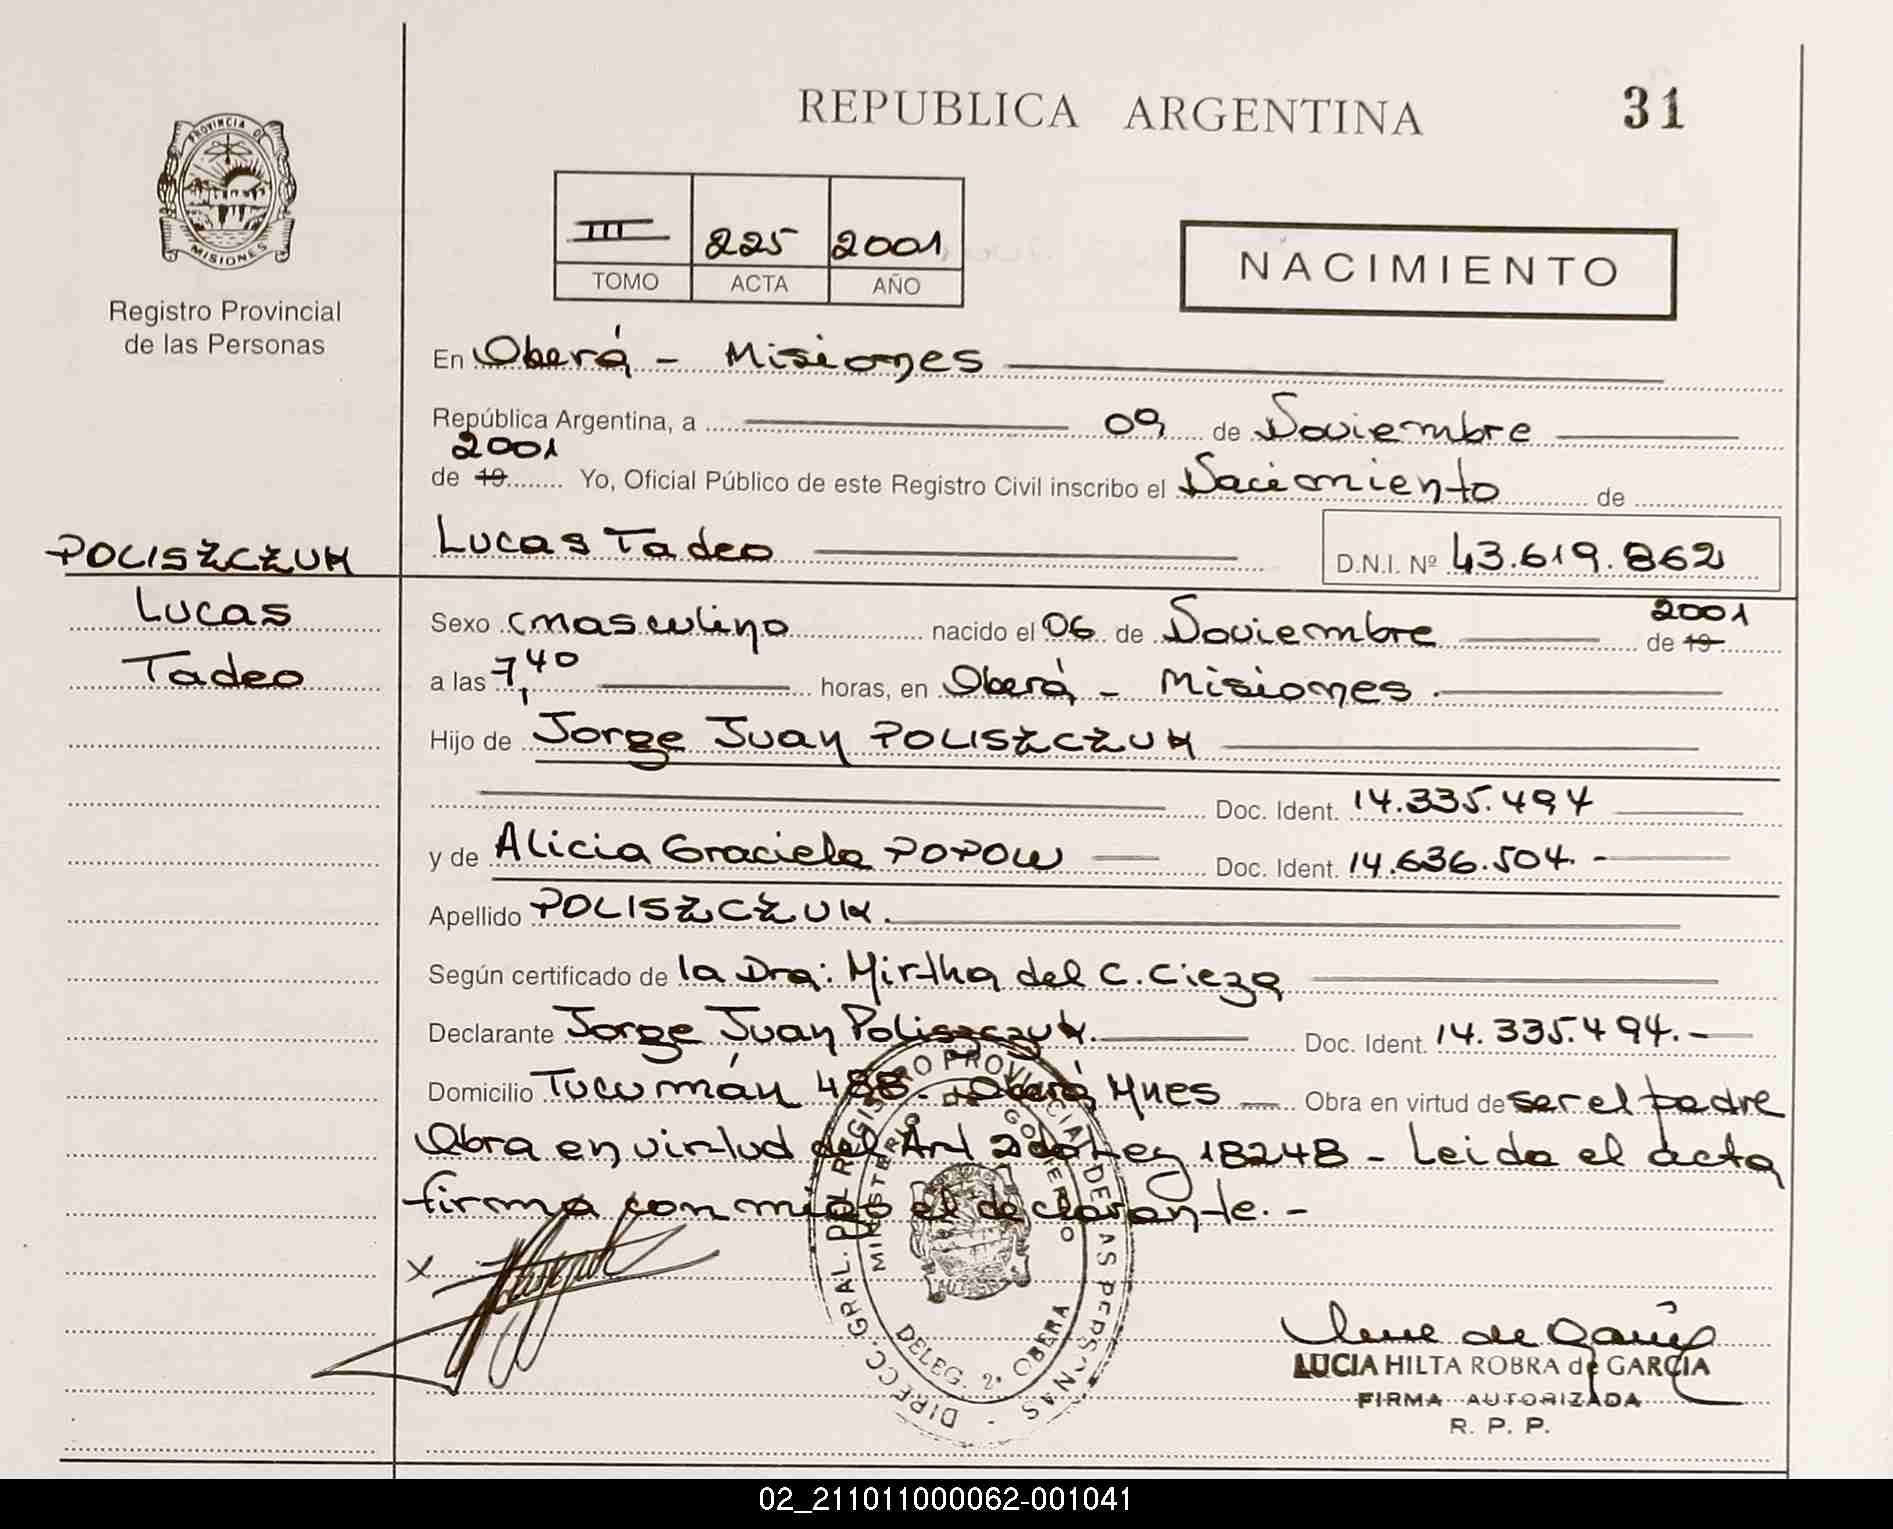 REPUBLICA ARGENTINA
31
PROVINCIA DE
MISIONES
Registro Provincial
de las Personas
III 225 2001
TOMO ACTA AÑO
NACIMIENTO
En Oberá - Misiones
República Argentina, a 09 de Noviembre
2001
de 19 Yo, Oficial Público de este Registro Civil inscribo el Nacimiento de
Lucas Tadeo D.N.I. Nº 43.619.862
POLISZCZUK
Lucas
Tadeo
Sexo Masculino nacido el 06 de Noviembre de 19 2001
a las 7,40 horas, en Oberá - Misiones.
Hijo de Jorge Juan POLISZCZUK
Doc. Ident. 14.335.494
y de Alicia Graciela POPOW Doc. Ident. 14.636.504.-
Apellido POLISZCZUK.
Según certificado de la Dra: Mirtha del C. Cieza
Declarante Jorge Juan Poliszczuk. Doc. Ident. 14.335.494.-
Domicilio Tucumán 488. Oberá, Mnes Obra en virtud de ser el padre
Obra en virtud del Art 2do Ley 18248 - Leida el acta
firma con migo el declarante.-
x
DIRECC. GRAL. DEL REGISTRO PROVINCIAL DE LAS PERSONAS
MINISTERIO DE GOBIERNO
DELEG. 2ª OBERA
LUCIA HILTA ROBRA de GARCIA
FIRMA AUTORIZADA
R. P. P.
02_211011000062-001041